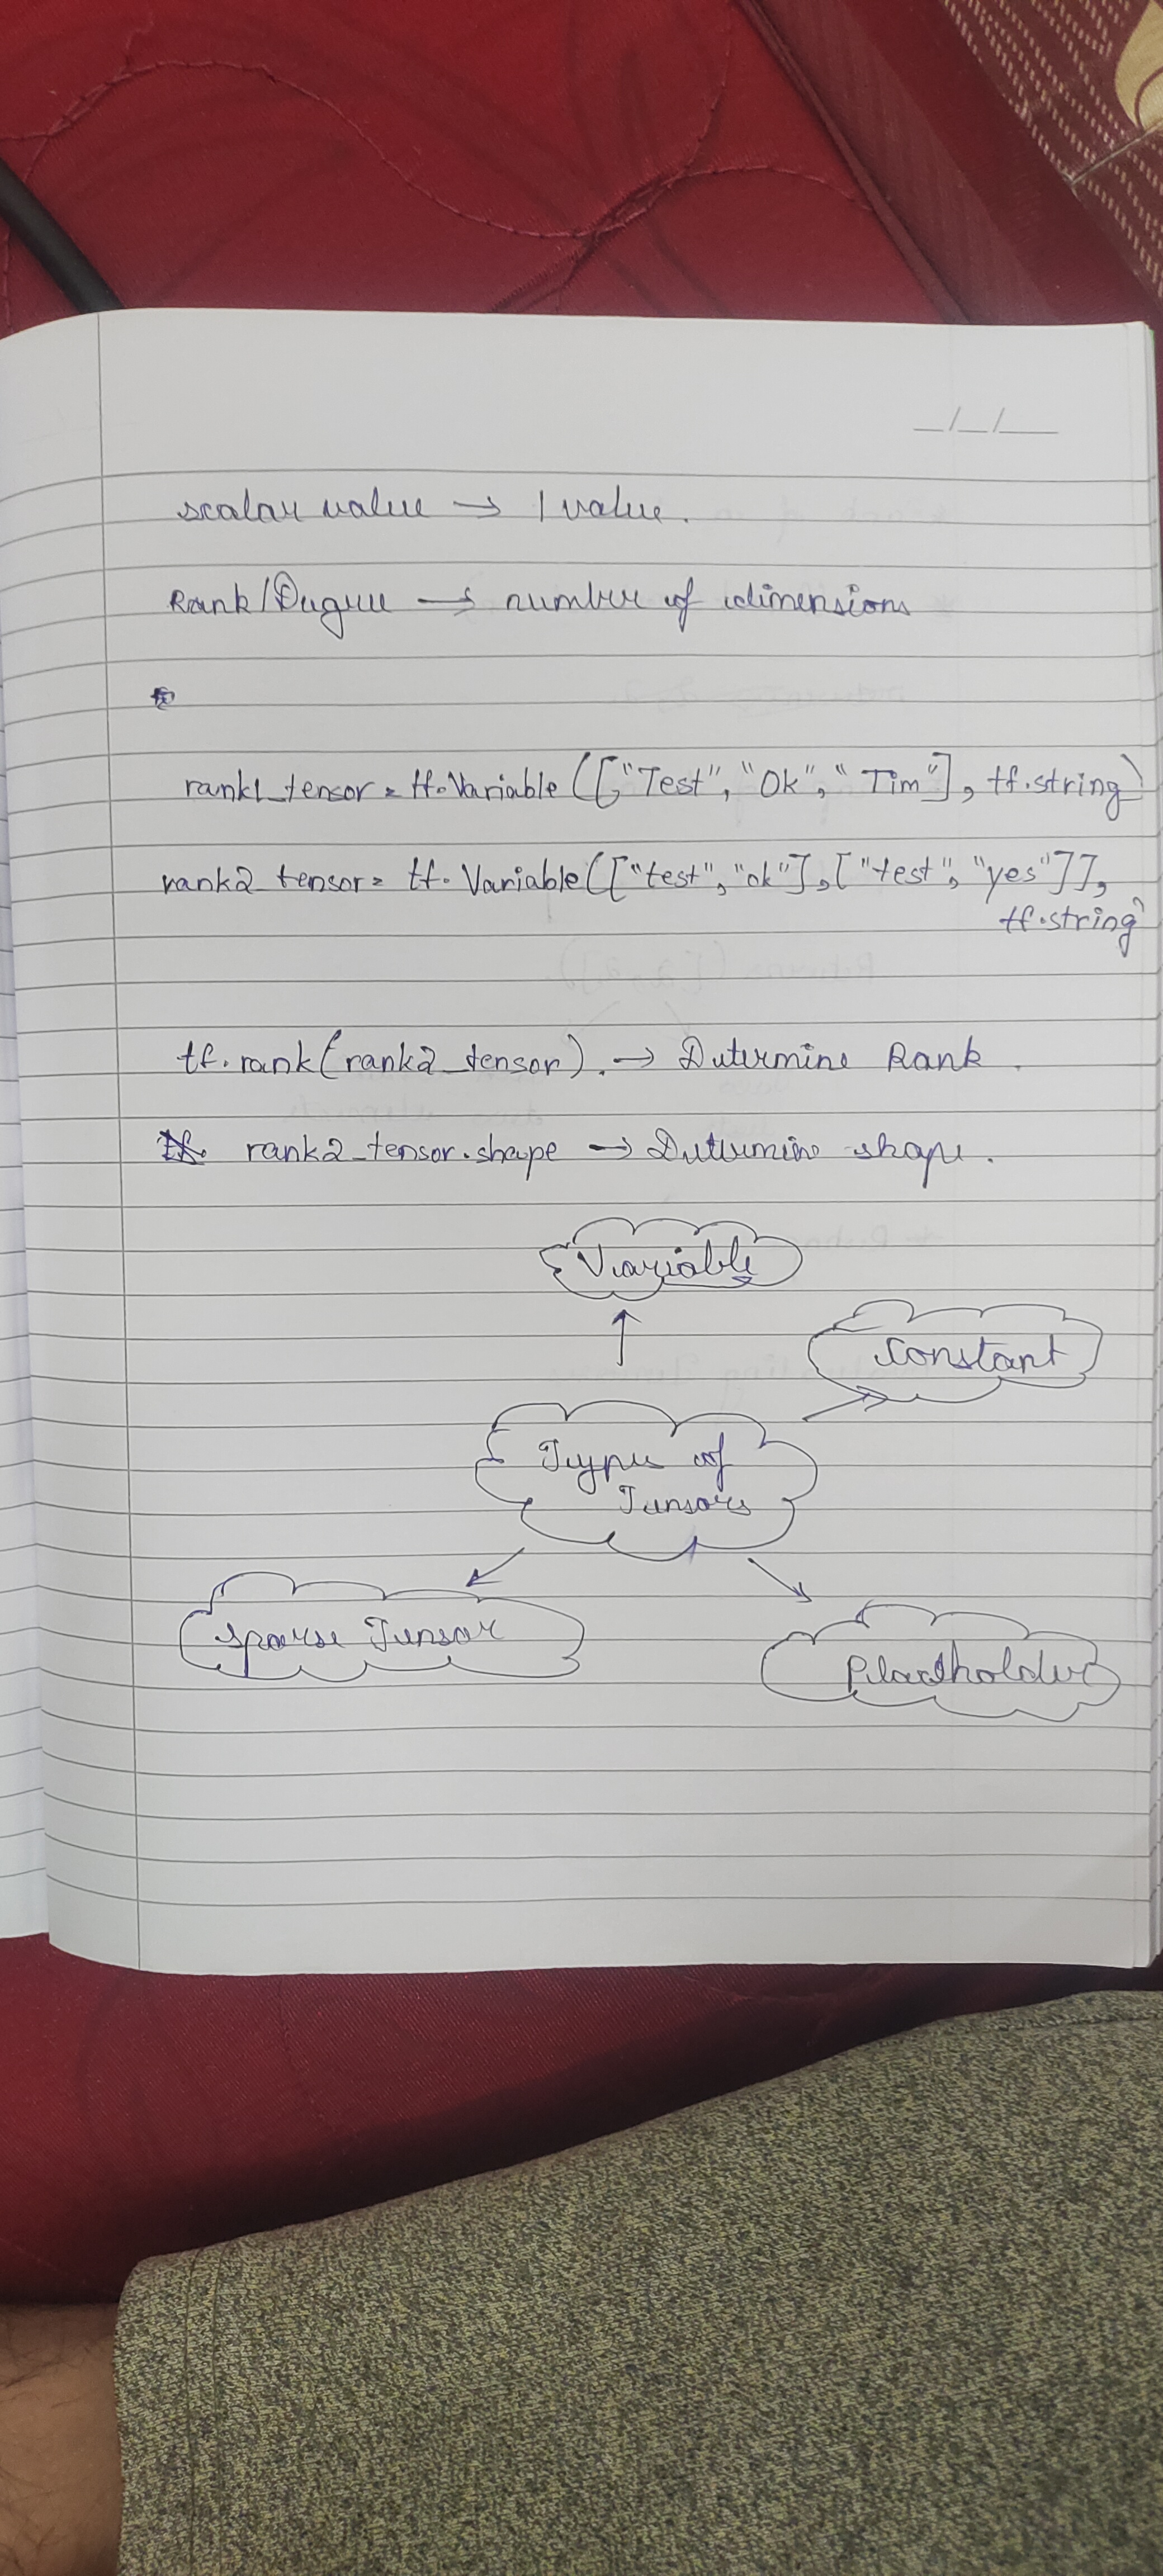 _/_/__
scalar value → 1 value.
Rank/Degree → number of dimensions
rank1_tensor = tf.Variable(["Test", "Ok", "Tim"], tf.string)
rank2_tensor = tf.Variable([["test", "ok"], ["test", "yes"]],
tf.string)
tf.rank(rank2_tensor). → Determine Rank.
rank2_tensor.shape → Determine shape.
Variable
Constant
Types of
Tensors
Sparse Tensor
Placeholder